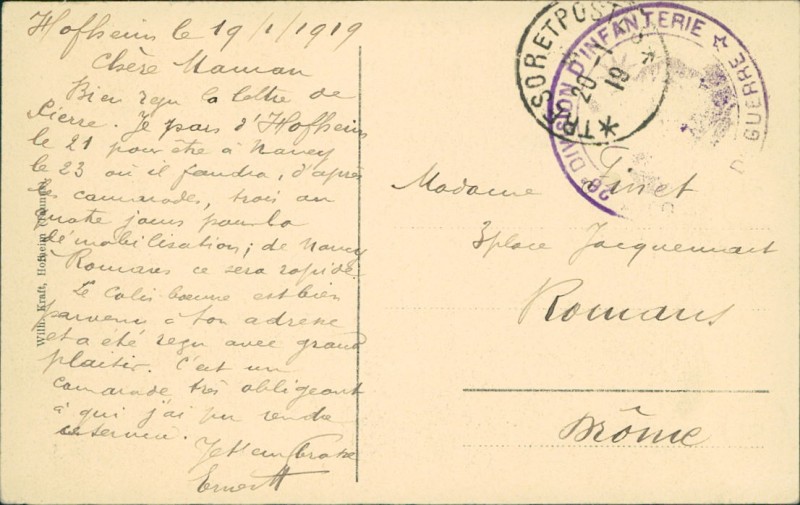 Hofheim le 19/1/1919
Chère Maman
Bien reçu la lettre de
Pierre. Je pars d'Hofheim
le 21 pour être à Nancy
le 23 où il faudra, d'après
les camarades, trois ou
quatre jours pour la
démobilisation; de Nancy
Romans ce sera rapide.
Le colis beurre est bien
parvenu à ton adresse
et a été reçu avec grand
plaisir. C'est un
camarade très obligeant
à qui j'ai pu rendre
ce service.
Je t'embrasse
Ernest
Wilh. Kraft, Hofheim
TRESOR ET POSTES
20 -1
19
28e DIVISION D'INFANTERIE
GUERRE
Madame Ginet
3 place Jacquemart
Romans
Drôme